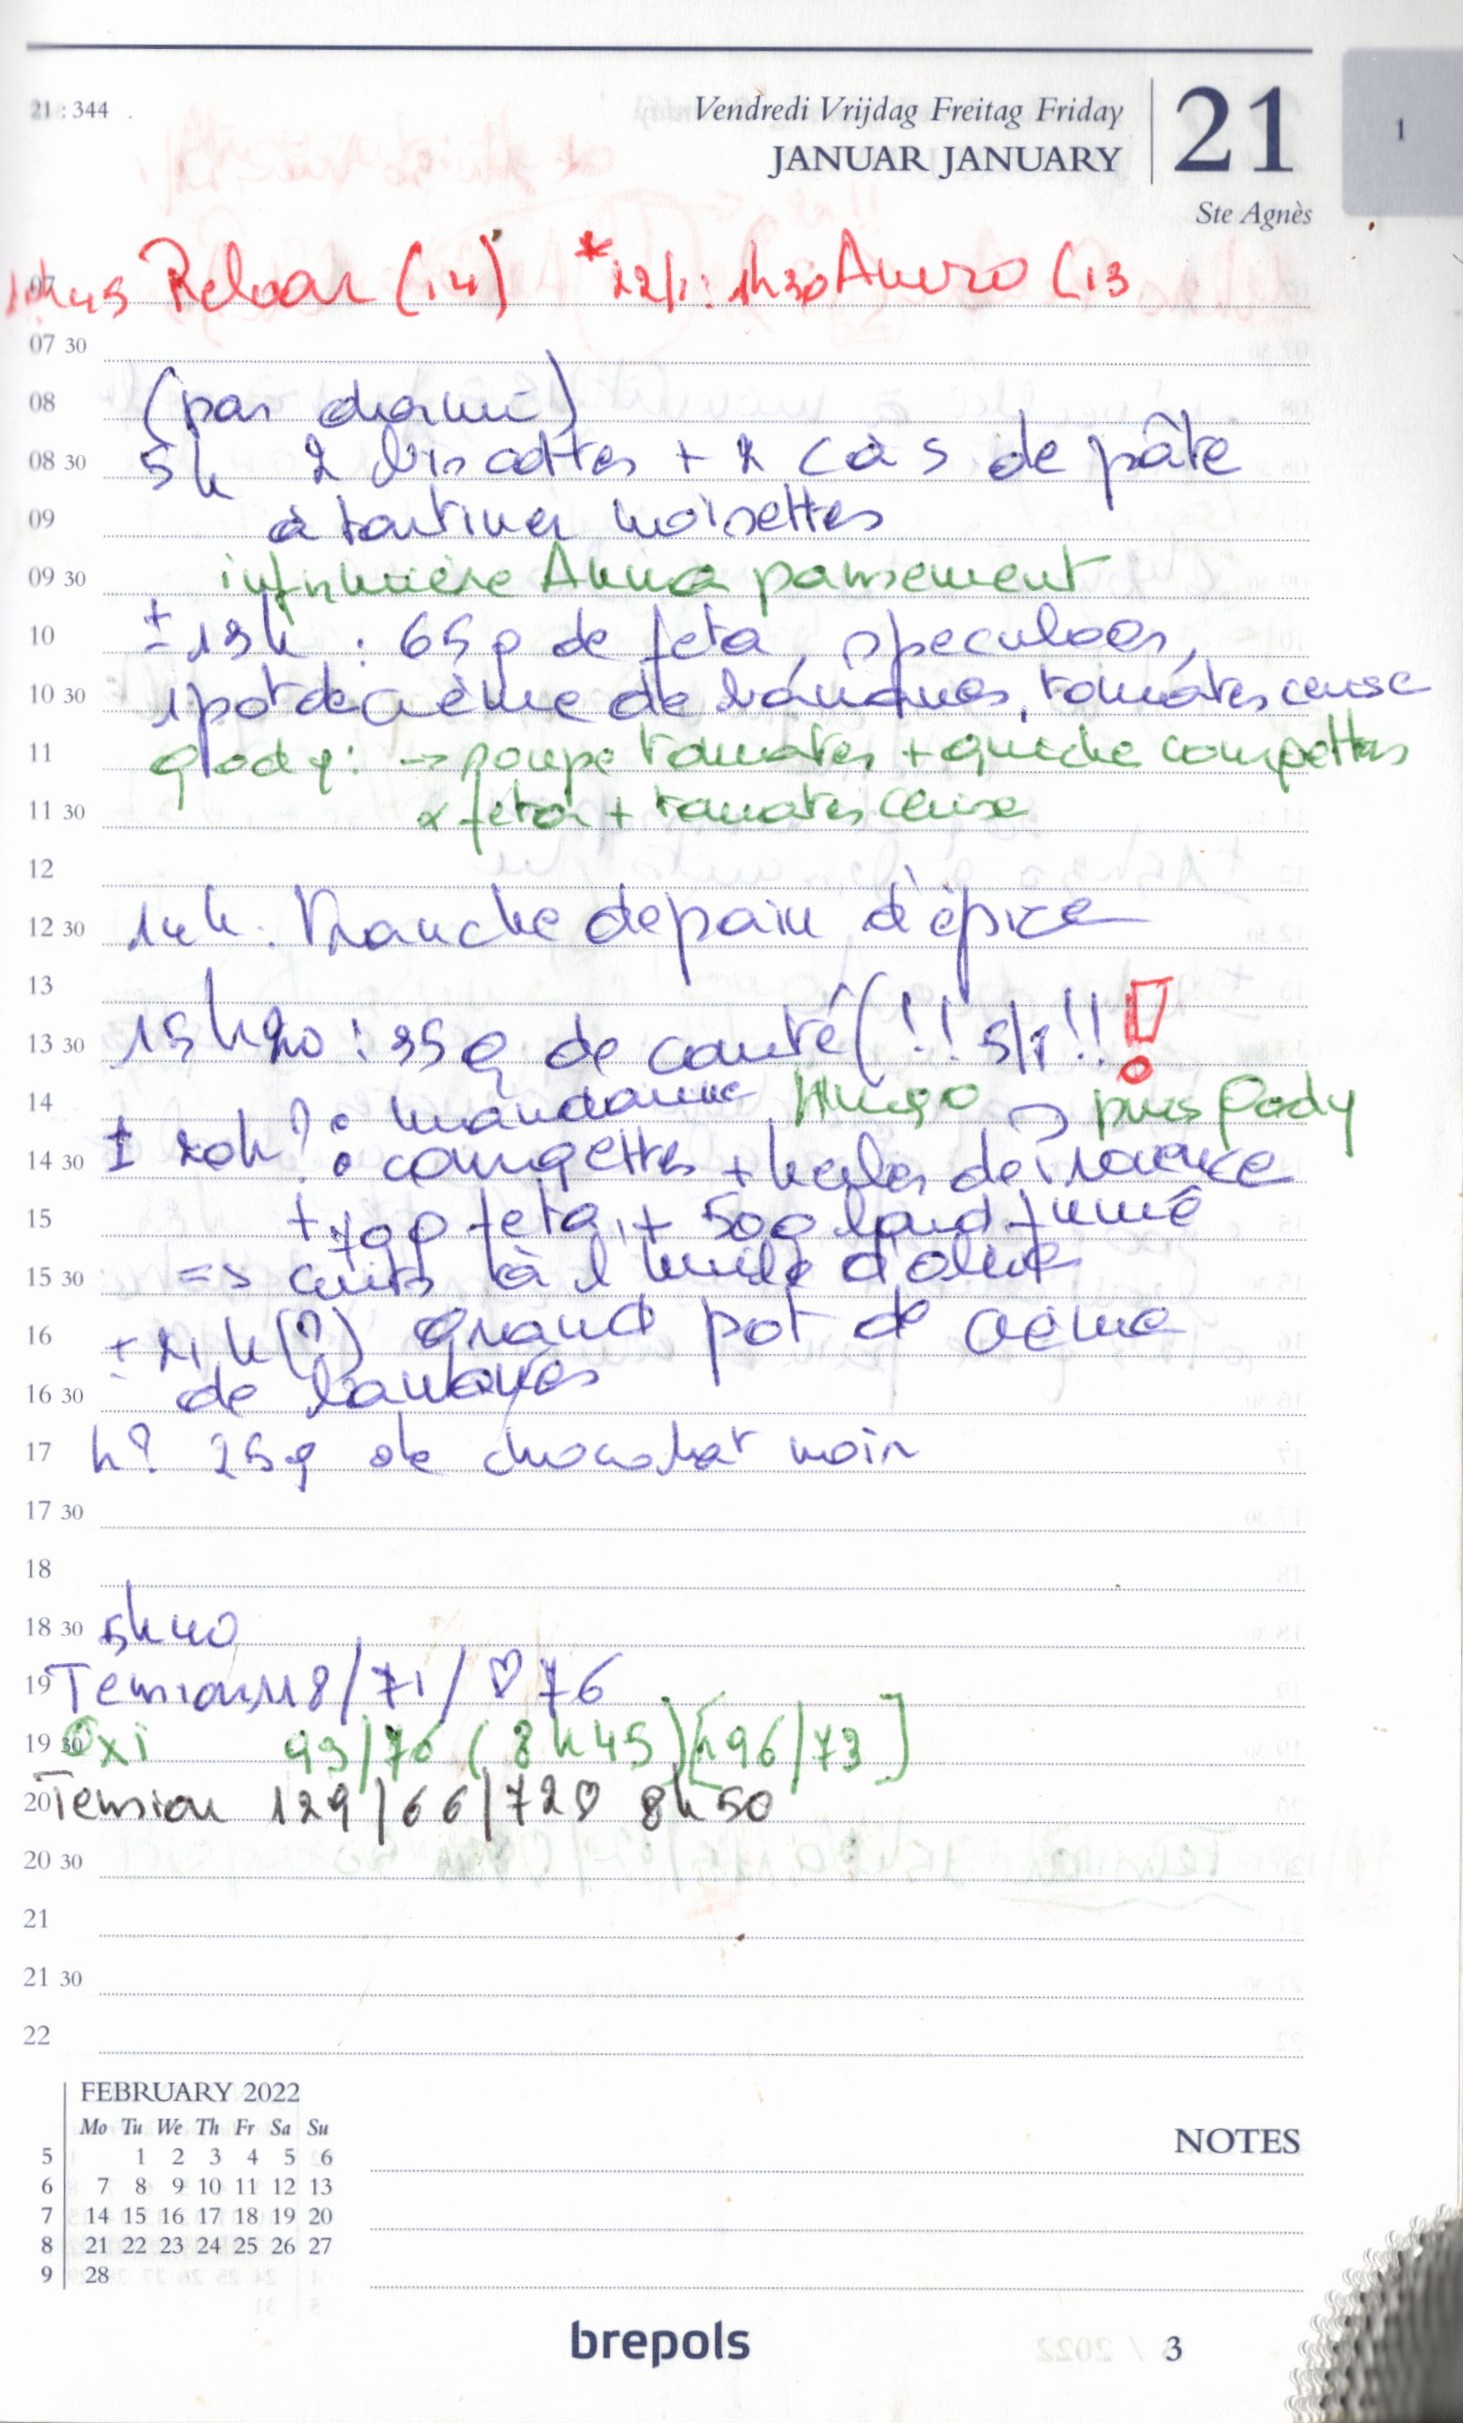 21 : 344
Vendredi Vrijdag Freitag Friday
JANUAR JANUARY
21
1
Ste Agnès
07
(14) * 22/1: 1h30 (13
07 30
(pas dormi)
08
08 30 5h 2 biscottes + 2 càs de pâte
09 à tartiner noisettes
09 30 infirmière Anna pansement
10 ± 13h : 65g de feta, speculoos,
10 30 1 pot de crème de bananes, tomates cerise
11 → soupe tomates + quiche courgettes
11 30 x feta + tomates cerise
12
12 30 14h. Tranche de pain d'épice
13
13 30 15h20 : 35g de comté (!! 5/1 !! !
14 mandarine Hugo puis Pody
14 30 ± 20h? : courgettes + herbes de Provence
15 + 70g feta, + 50g lard fumé
15 30 => cuits à l'huile d'olive
16 ± 21h(?) grand pot de crème
16 30 de bananes
17 h? 25g de chocolat noir
17 30
18
18 30 5h40
19 Tension 118/71/♡76
19 30 Oxi 93/76 (8h45) [96/73]
20 Tension 129/66/72♡ 8h50
20 30
21
21 30
22
FEBRUARY 2022
Mo Tu We Th Fr Sa Su
5 1 2 3 4 5 6
6 7 8 9 10 11 12 13
7 14 15 16 17 18 19 20
8 21 22 23 24 25 26 27
9 28
NOTES
brepols
3